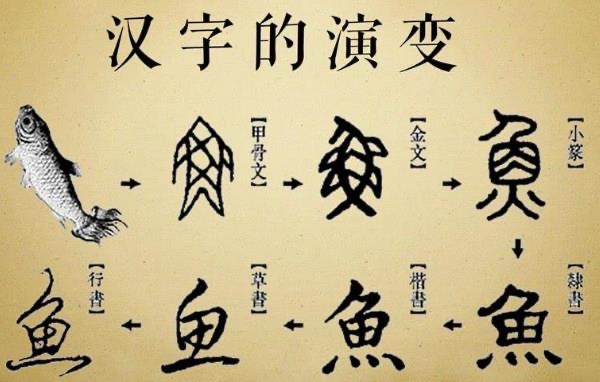 汉字的演变
魚
【甲骨文】
魚
【金文】
魚
【小篆】
魚
【隸書】
魚
【楷書】
鱼
【草書】
魚
【行書】